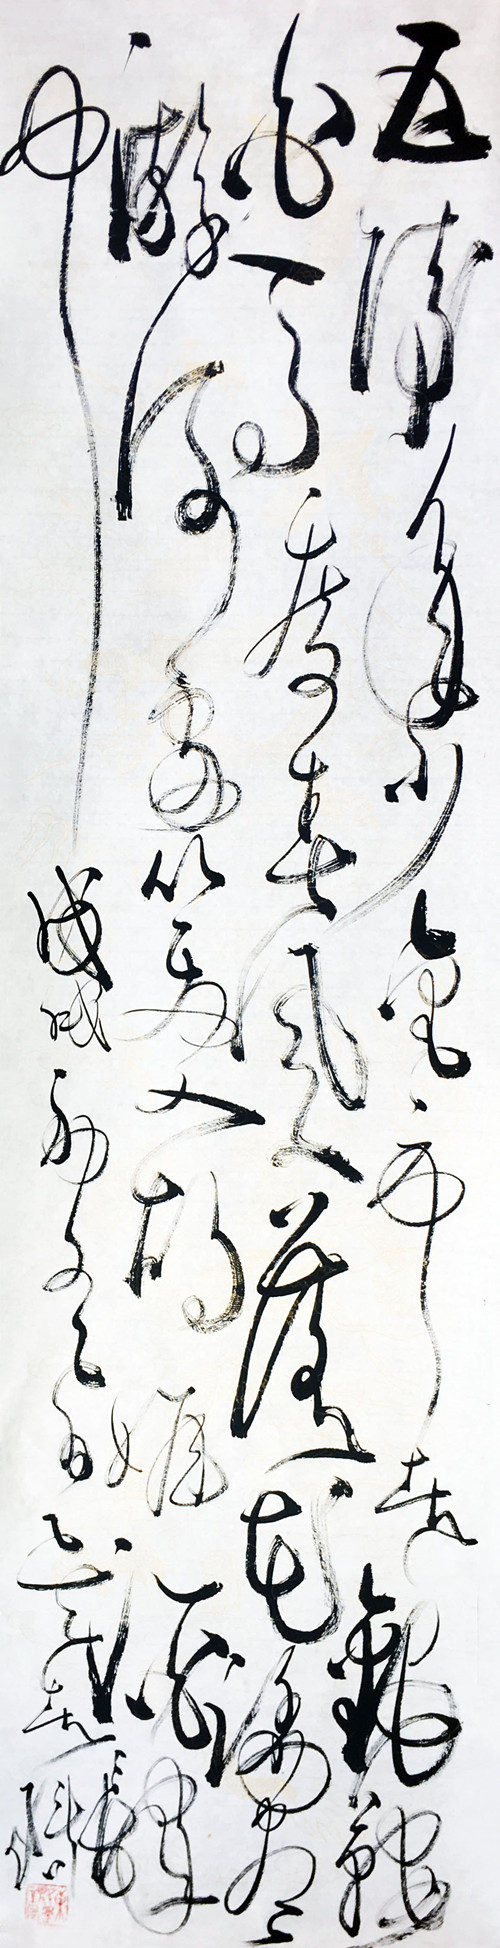 五陵年少金市東銀鞍
白馬度春風落花踏盡
遊何處笑入胡姬酒肆
中
戊戌